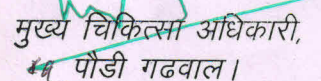 मुख्य चिकित्सा अधिकारी,
पौडी गढवाल।